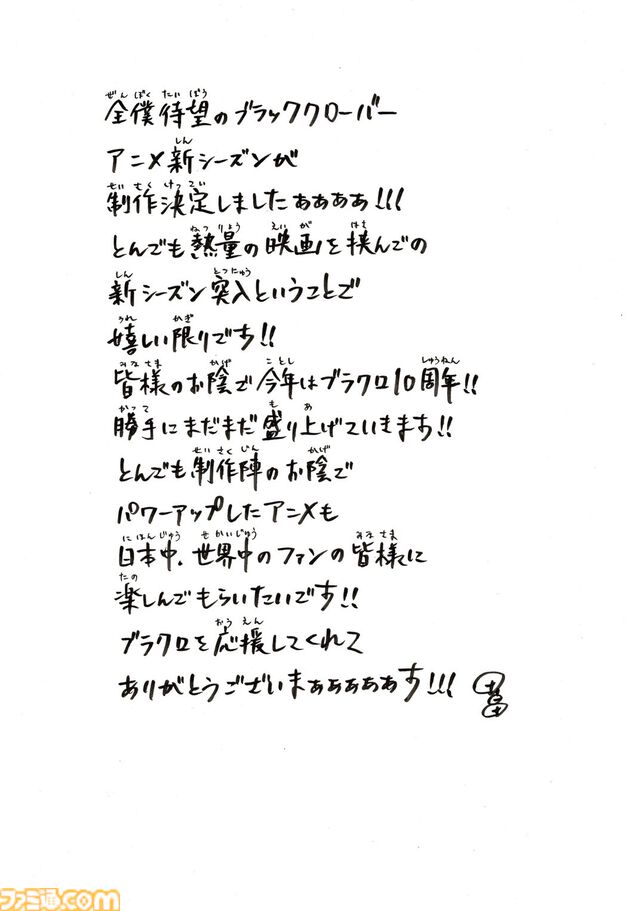 全僕待望のブラッククローバー
アニメ新シーズンが
制作決定しましたぁぁぁぁ!!!
とんでも熱量の映画を挟んでの
新シーズン突入ということで
嬉しい限りです!!
皆様のお陰で今年はブラクロ10周年!!
勝手にまだまだ盛り上げていきます!!
とんでも制作陣のお陰で
パワーアップしたアニメも
日本中、世界中のファンの皆様に
楽しんでもらいたいです!!
ブラクロを応援してくれて
ありがとうございまぁぁぁぁぁす!!!
ファミ通.com